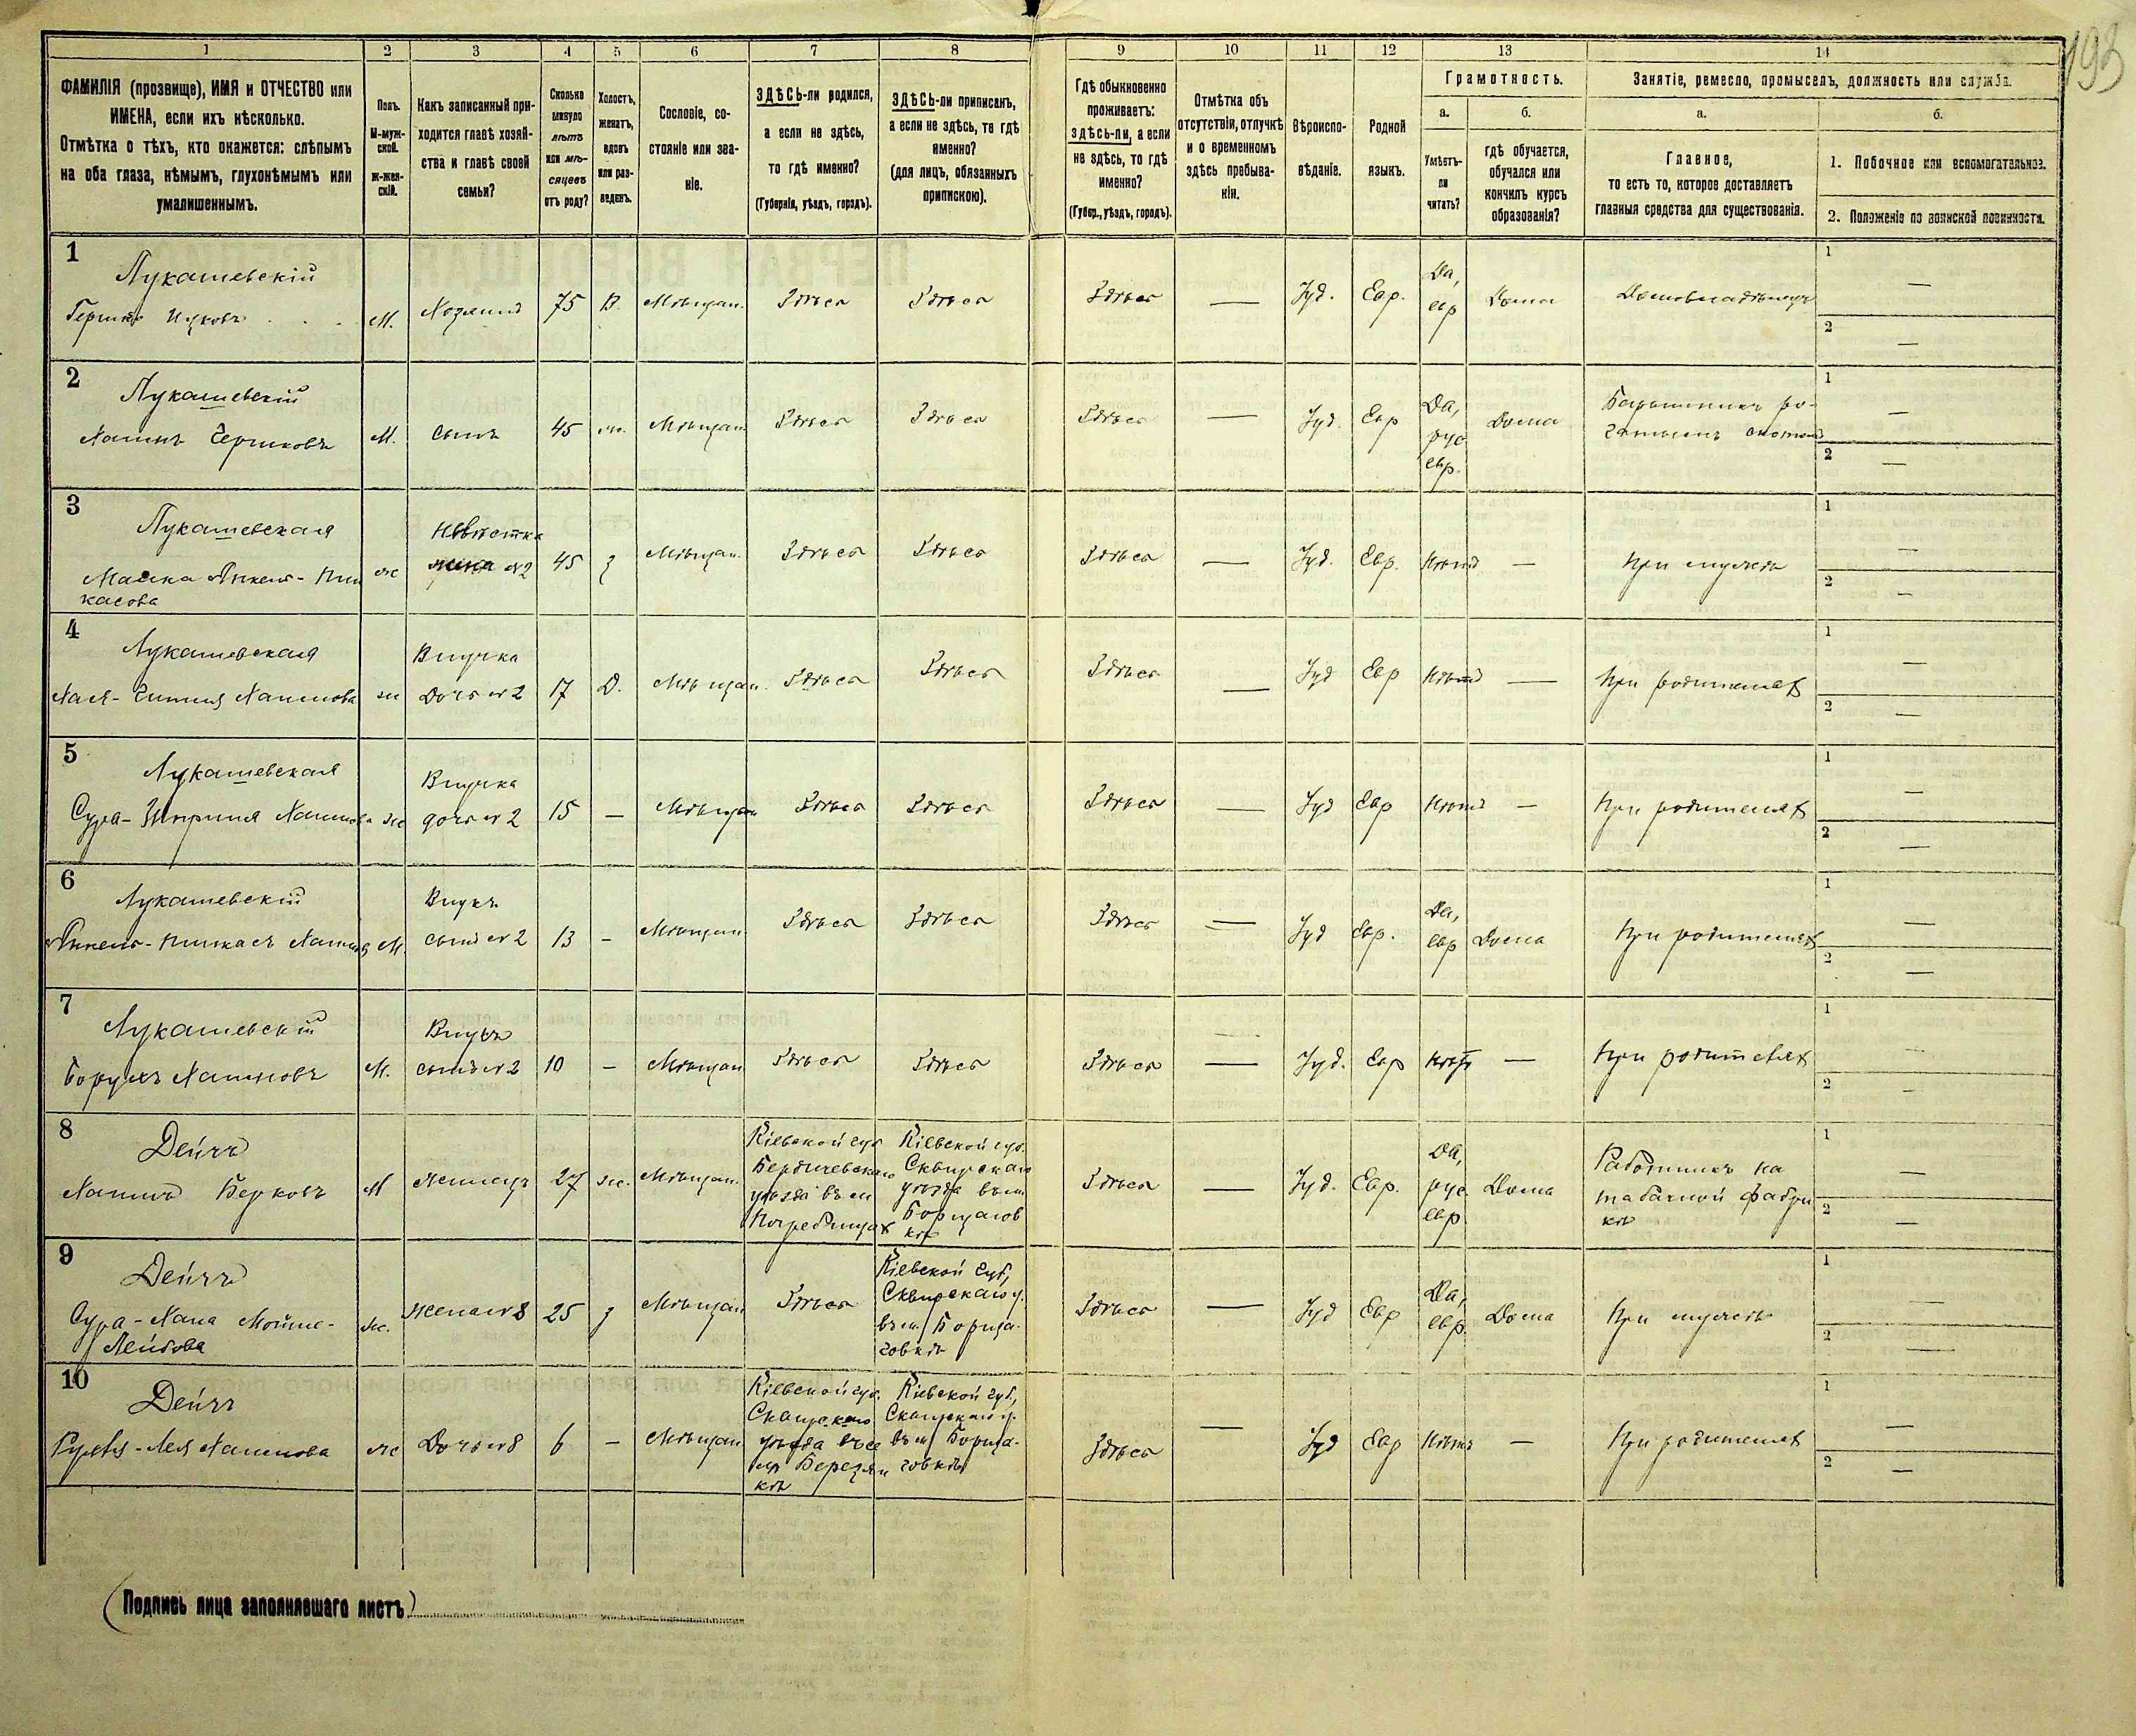 193
1 2 3 4 5 6 7 8 9 10 11 12 13 14
ФАМИЛІЯ (прозвище), ИМЯ и ОТЧЕСТВО или
ИМЕНА, если ихъ нѣсколько.
Отмѣтка о тѣхъ, кто окажется: слѣпымъ
на оба глаза, нѣмымъ, глухонѣмымъ или
умалишеннымъ.
Полъ.
М-муж-
ской.
Ж-жен-
скій.
Какъ записанный при-
ходится главѣ хозяй-
ства и главѣ своей
семьи?
Сколько
минуло
лѣтъ
или мѣ-
сяцевъ
отъ роду?
Холостъ,
женатъ,
вдовъ
или раз-
веденъ.
Сословіе, со-
стояніе или зва-
ніе.
ЗДѢСЬ-ли родился,
а если не здѣсь,
то гдѣ именно?
(Губернія, уѣздъ, городъ).
ЗДѢСЬ-ли приписанъ,
а если не здѣсь, то гдѣ
именно?
(для лицъ, обязанныхъ
припискою).
Гдѣ обыкновенно
проживаетъ:
здѣсь-ли, а если
не здѣсь, то гдѣ
именно?
(Губер., уѣздъ, городъ).
Отмѣтка объ
отсутствіи, отлучкѣ
и о временномъ
здѣсь пребыва-
ніи.
Вѣроиспо-
вѣданіе.
Родной
языкъ.
Грамотность.
а.
Умѣетъ-
ли
читать?
б.
гдѣ обучается,
обучался или
кончилъ курсъ
образованія?
Занятіе, ремесло, промыселъ, должность или служба.
а.
Главное,
то есть то, которое доставляетъ
главныя средства для существованія.
б.
1. Побочное или вспомогательное.
2. Положеніе по воинской повинности.
1
Лукашевскій
Гершко Ицковъ
М. Хозяинъ 75 В. Мѣщан. Здѣсь Здѣсь Здѣсь — Іуд. Евр.
Да,
евр
Дома Домовладѣлецъ
1 —
2 —
2
Лукашевскій
Хаимъ Гершковъ
М. Сынъ 45 ж. Мѣщан Здѣсь Здѣсь Здѣсь — Іуд. Евр
Да,
рус
евр.
Дома
Барышникъ ро-
гатымъ скотомъ
1 —
2 —
3
Лукашевская
Малка Янкель-Пин
касова
ж
Невѣстка
жена №2
45 з Мѣщан. Здѣсь Здѣсь Здѣсь — Іуд. Евр. Нѣтъ — При мужѣ
1 —
2 —
4
Лукашевская
Хая-Гитля Хаимова
ж
Внучка
Дочь №2
17 Д. Мѣщан. Здѣсь Здѣсь Здѣсь — Іуд Евр Нѣтъ — При родителях
1 —
2 —
5
Лукашевская
Сура- Хаимова
ж
Внучка
дочь №2
15 — Мѣщан Здѣсь Здѣсь Здѣсь — Іуд Евр Нѣтъ — При родителях
1 —
2 —
6
Лукашевскій
Янкель-Пинкасъ Хаимов
М.
Внукъ
сынъ №2
13 - Мѣщан Здѣсь Здѣсь Здѣсь — Іуд Евр.
Да,
евр
Дома При родителях
1 —
2 —
7
Лукашевскій
Борухъ Хаимовъ
М.
Внукъ
сынъ №2
10 - Мѣщан Здѣсь Здѣсь Здѣсь — Іуд. Евр Нѣтъ — При родителях
1 —
2 —
8
Дейчъ
Хаимъ Берковъ
М жилецъ 27 ж. Мѣщан.
Кіевской губ
Бердичевскаго
уѣзда въ м
Погребищах
Кіевской губ.
Сквирскаго
уѣзда въ м
Борщагов
кѣ
Здѣсь — Іуд. Евр.
Да,
рус.
евр
Дома
Работникъ на
табачной фабри
кѣ
1 —
2 —
9
Дейчъ
Сура-Хана Мойше-
Лейбова
ж. жена №8 25 з Мѣщан Здѣсь
Кіевской губ,
Сквирскаго у.
въ м Борща-
говкѣ
Здѣсь — Іуд Евр
Да,
евр.
Дома При мужѣ
1 —
2 —
10
Дейчъ
Рухля-Лея Хаимова
ж Дочь №8 6 — Мѣщан
Кіевской губ.
Сквирскаго
уѣзда въ се
лѣ Березян
кѣ
Кіевской губ,
Сквирскаго у.
въ м Борща-
говкѣ
Здѣсь — Іуд Евр Нѣтъ — При родителях
1 —
2 —
(Подпись лица заполнявшаго листъ)